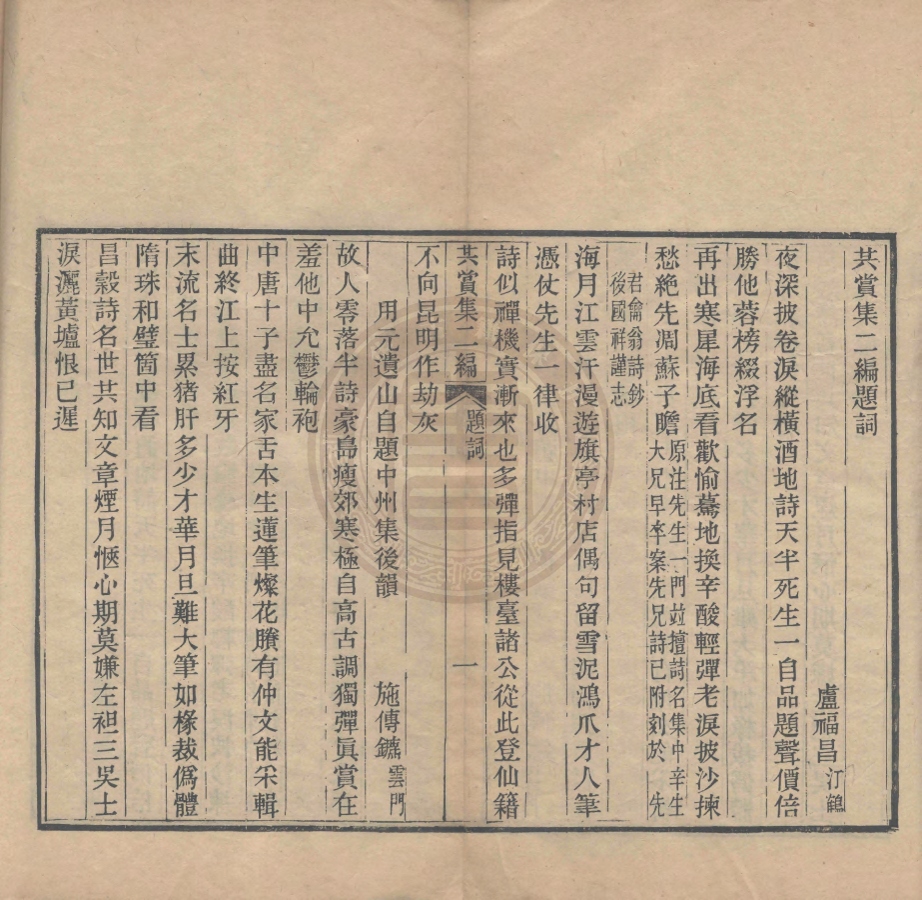 共賞集二編題詞
盧福昌汀鶴
夜深披卷淚縱橫酒地詩天半死生一自品題聲價倍
勝他蓉榜綴浮名
再出寒星海底看歡愉驀地換辛酸輕彈老淚披沙揀
愁絶先凋蘇子瞻原注先生一門竝壇詩名集中辛生
大兄早卒案先兄詩已附刻於　先
君侖翁詩鈔
後國祥謹志
海月江雲汗漫遊旗亭村店偶句留雪泥鴻爪才人筆
憑仗先生一律收
詩似禪機實漸來也多彈指見樓臺諸公從此登仙籍
共賞集二編　題詞　一
不向昆明作劫灰
用元遺山自題中州集後韻　施傅鑣雲門
故人零落半詩豪島瘦郊寒極自高古調獨彈眞賞在
羞他中允鬱輪袍
中唐十子盡名家舌本生蓮筆燦花賸有仲文能采輯
曲終江上按紅牙
末流名士累猪肝多少才華月旦難大筆如椽裁僞體
隋珠和璧箇中看
昌穀詩名世共知文章煙月愜心期莫嫌左袒三吳士
淚灑黃壚恨已遲